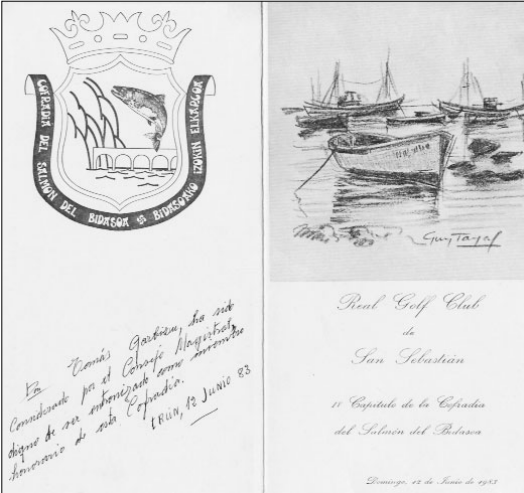 COFRADIA DEL SALMON DEL BIDASOA
BIDASOAKO IZOKIN ELKARGOA
Tomás Garbizu, ha sido
Considerado por el Consejo Magistral,
digno de ser entronizado como miembro
honorario de esta Cofradia.
IRÚN, 12 JUNIO 83
Real Golf Club
de
San Sebastián
II Capítulo de la Cofradia
del Salmón del Bidasoa
Domingo, 12 de Junio de 1983